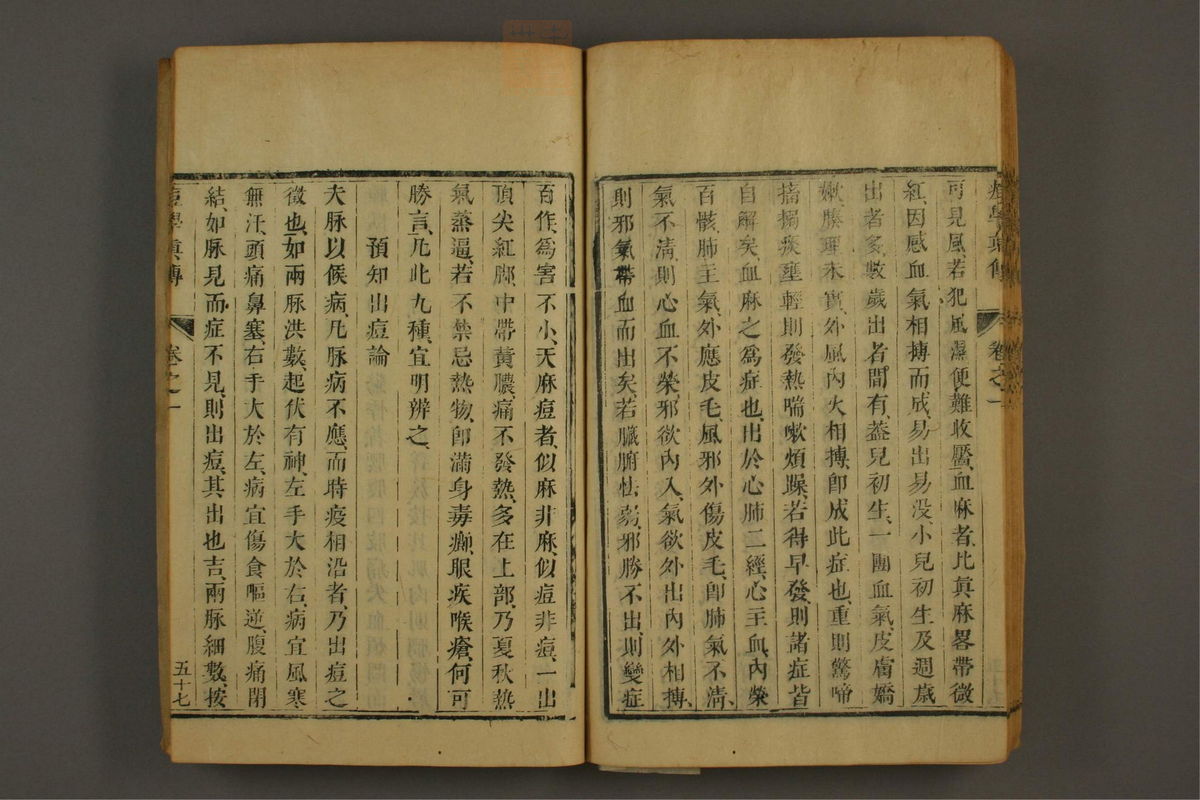 可見風若犯風濕便難收靨血麻者比眞麻畧帶微
紅因感血氣相搏而成易出易没小兒初生及週歲
出者多數歲出者間有葢兒初生一團血氣皮膚嬌
嫩腠理未實外風內火相搏卽成此症也重則驚啼
搐搦疾壅輕則發熱喘嗽煩躁若得早發則諸症皆
自解矣血麻之爲症也出於心肺二經心主血內榮
百骸肺主氣外應皮毛風邪外傷皮毛卽肺氣不淸
氣不淸則心血不榮邪欲內入氣欲外出內外相搏
則邪氣帶血而出矣若臟腑怯弱邪勝不出則變症
百作爲害不小天麻痘者似麻非麻似痘非痘一出
頂尖紅脚中帶黄膿痛不發熱多在上部乃夏秋熱
氣蒸逼若不禁忌熱物卽滿身毒癩眼疾喉瘡何可
勝言凡此九種宜明辨之
預知出痘論
夫脉以候病凡脉病不應而時疫相沿者乃出痘之
徵也如兩脉洪數起伏有神左手大於右病宜風寒
無汗頭痛鼻塞右手大於左病宜傷食嘔逆腹痛閉
結如脉見而症不見則出痘其出也吉兩脉細數按
痘學眞傳 卷之一 五十七